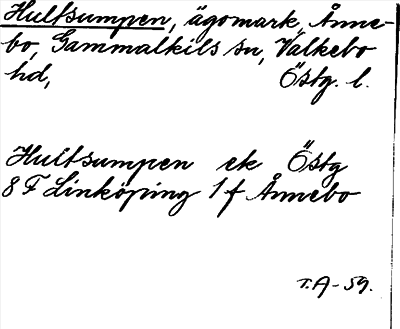 Hultsumpen, ägomark, Ånne-
bo, Gammalkils sn, Valkebo
hd, Östg. l.
Hultsumpen ek Östg
8 F Linköping 1 f Ånnebo
T.A-59.